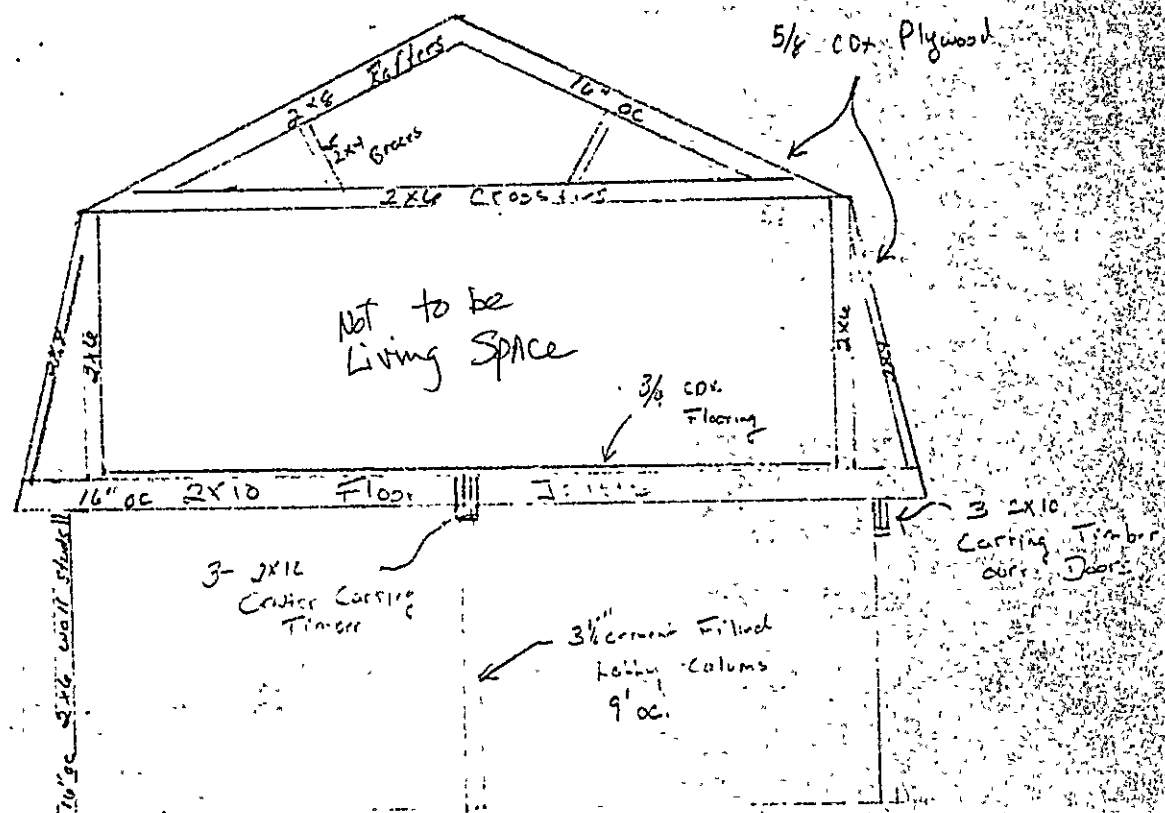 5/8 CDX Plywood
2x8 Rafters
16" OC
2x4
Braces
2x6 Crossties
Not to be
Living Space
2x6
2x6
3/4 CDX
Flooring
16" oc 2x10 Floor
3 2x10
Carring Timber
over Door
3- 2x12
Center Carring
Timber
3½" cement Filled
Lally Colums
9' oc.
16" oc 2x6 wall studs